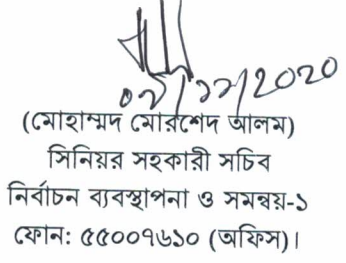 ০৮/১২/2020
(মোহাম্মদ মোরশেদ আলম)
সিনিয়র সহকারী সচিব
নির্বাচন ব্যবস্থাপনা ও সমন্বয়-১
ফোন: ৫৫০০৭৬১০ (অফিস)।